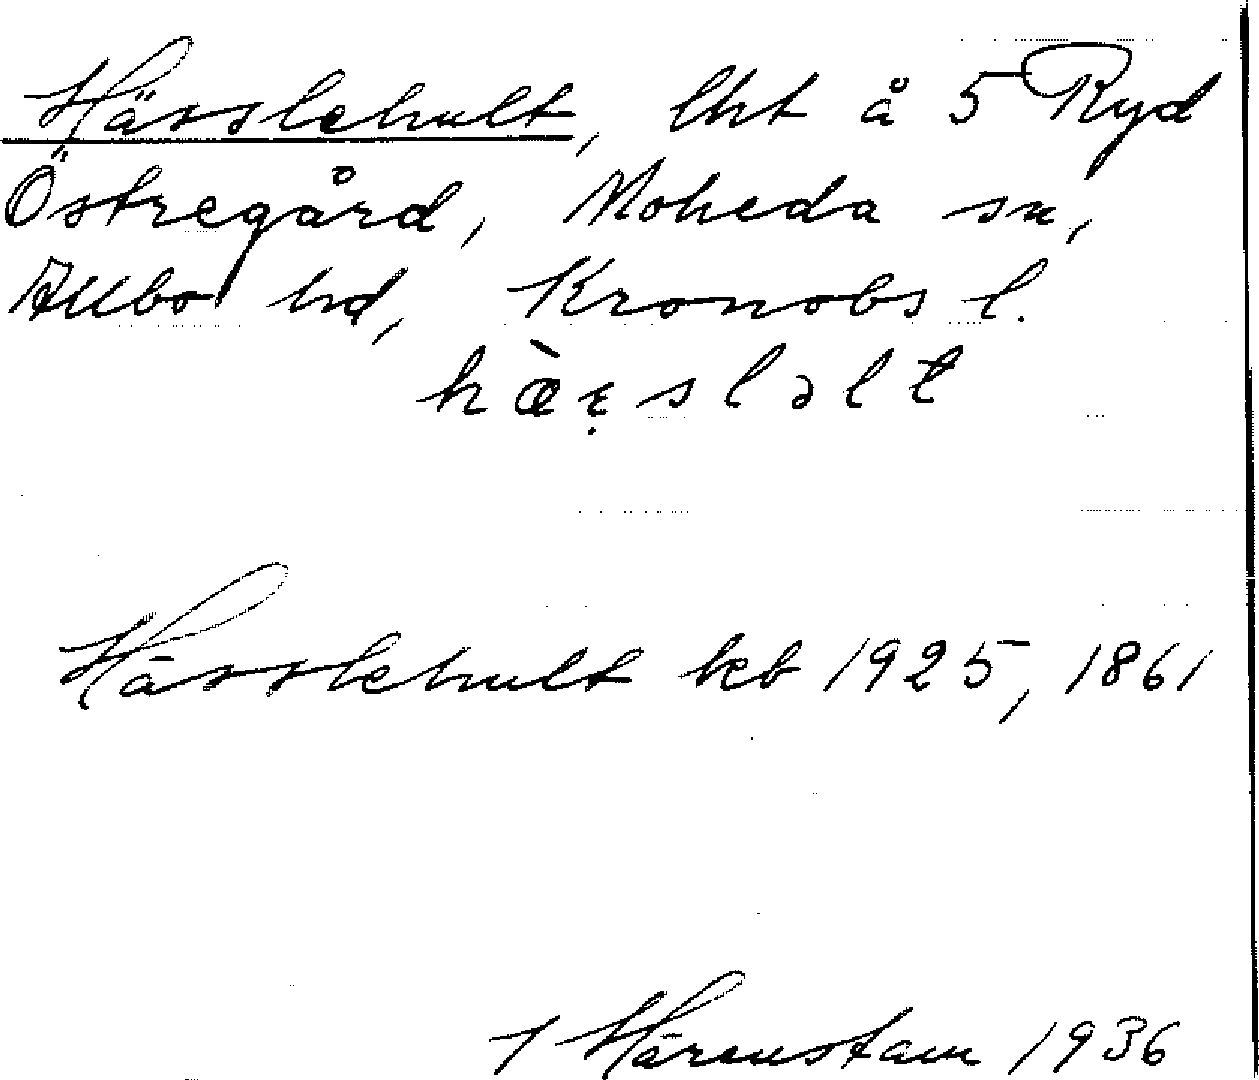 Hässlehult, lht å 5 Ryd
Östregård, Moheda sn,
Allbo hd, Kronobs l.
Hässlehult kb 1925, 1861
Härenstam 1936